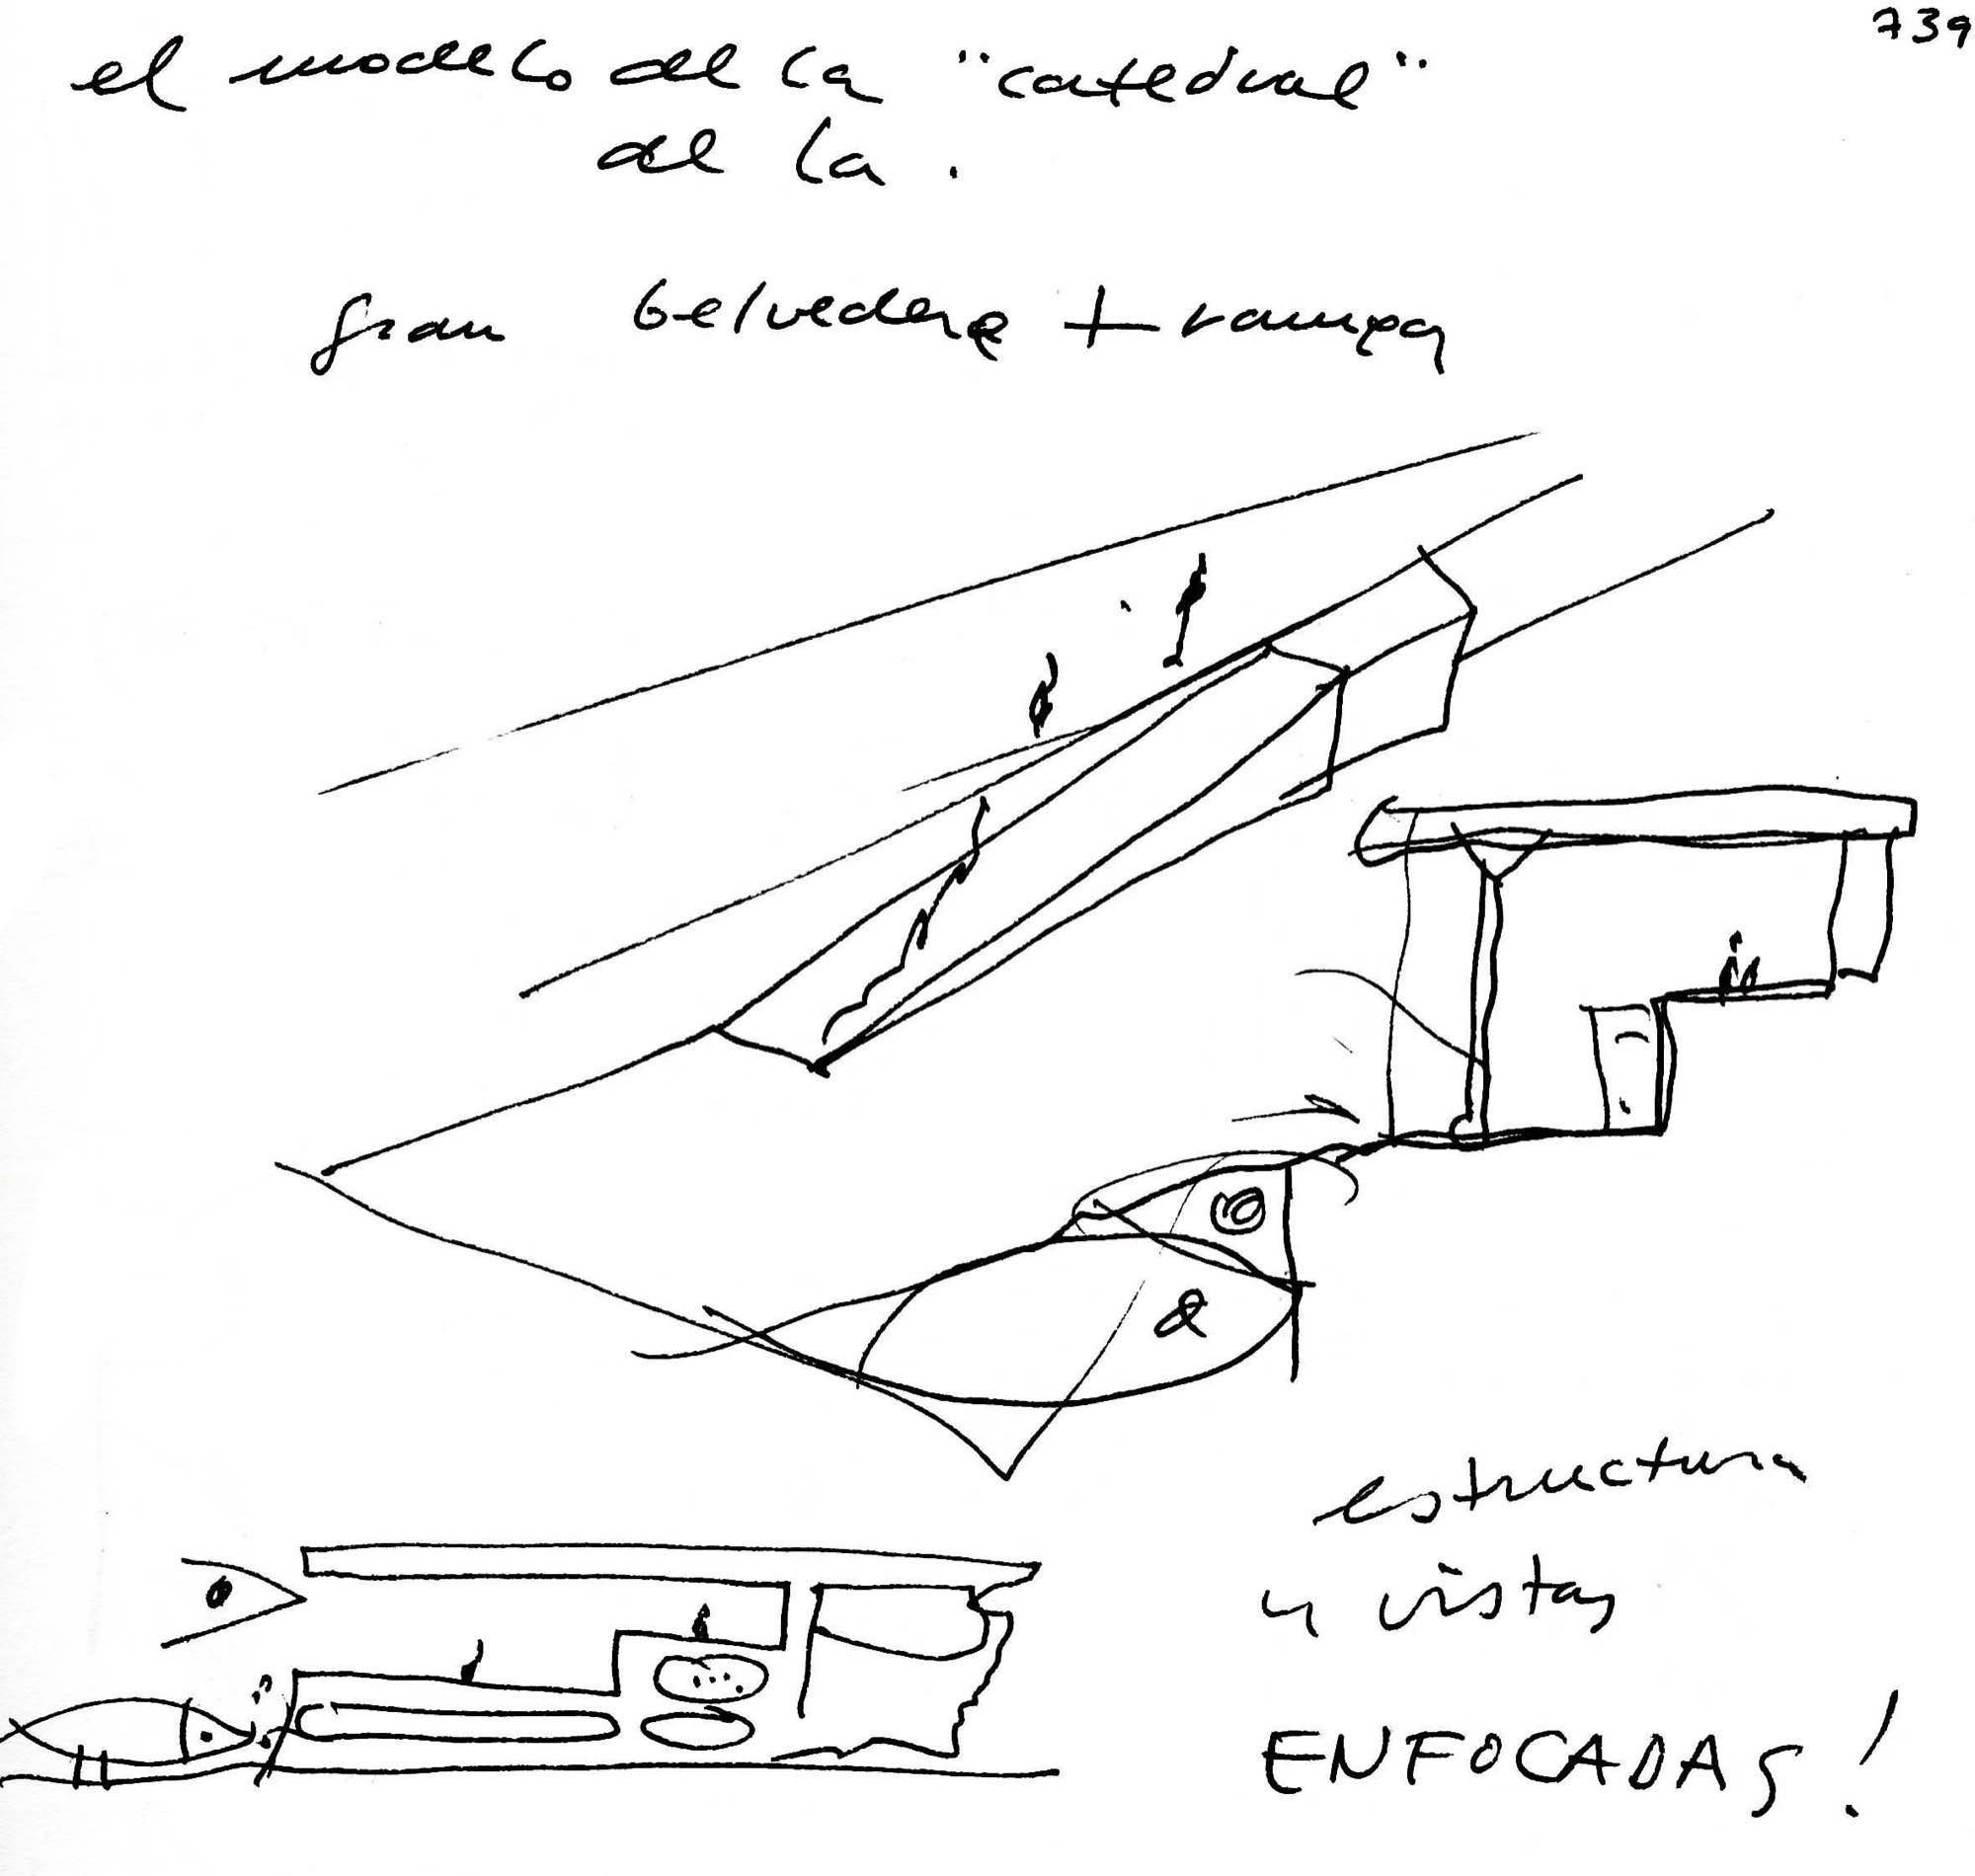 739
el modelo de la "catedral"
de la .
gran belvedere + rampa
estructura
y vistas
ENFOCADAS!